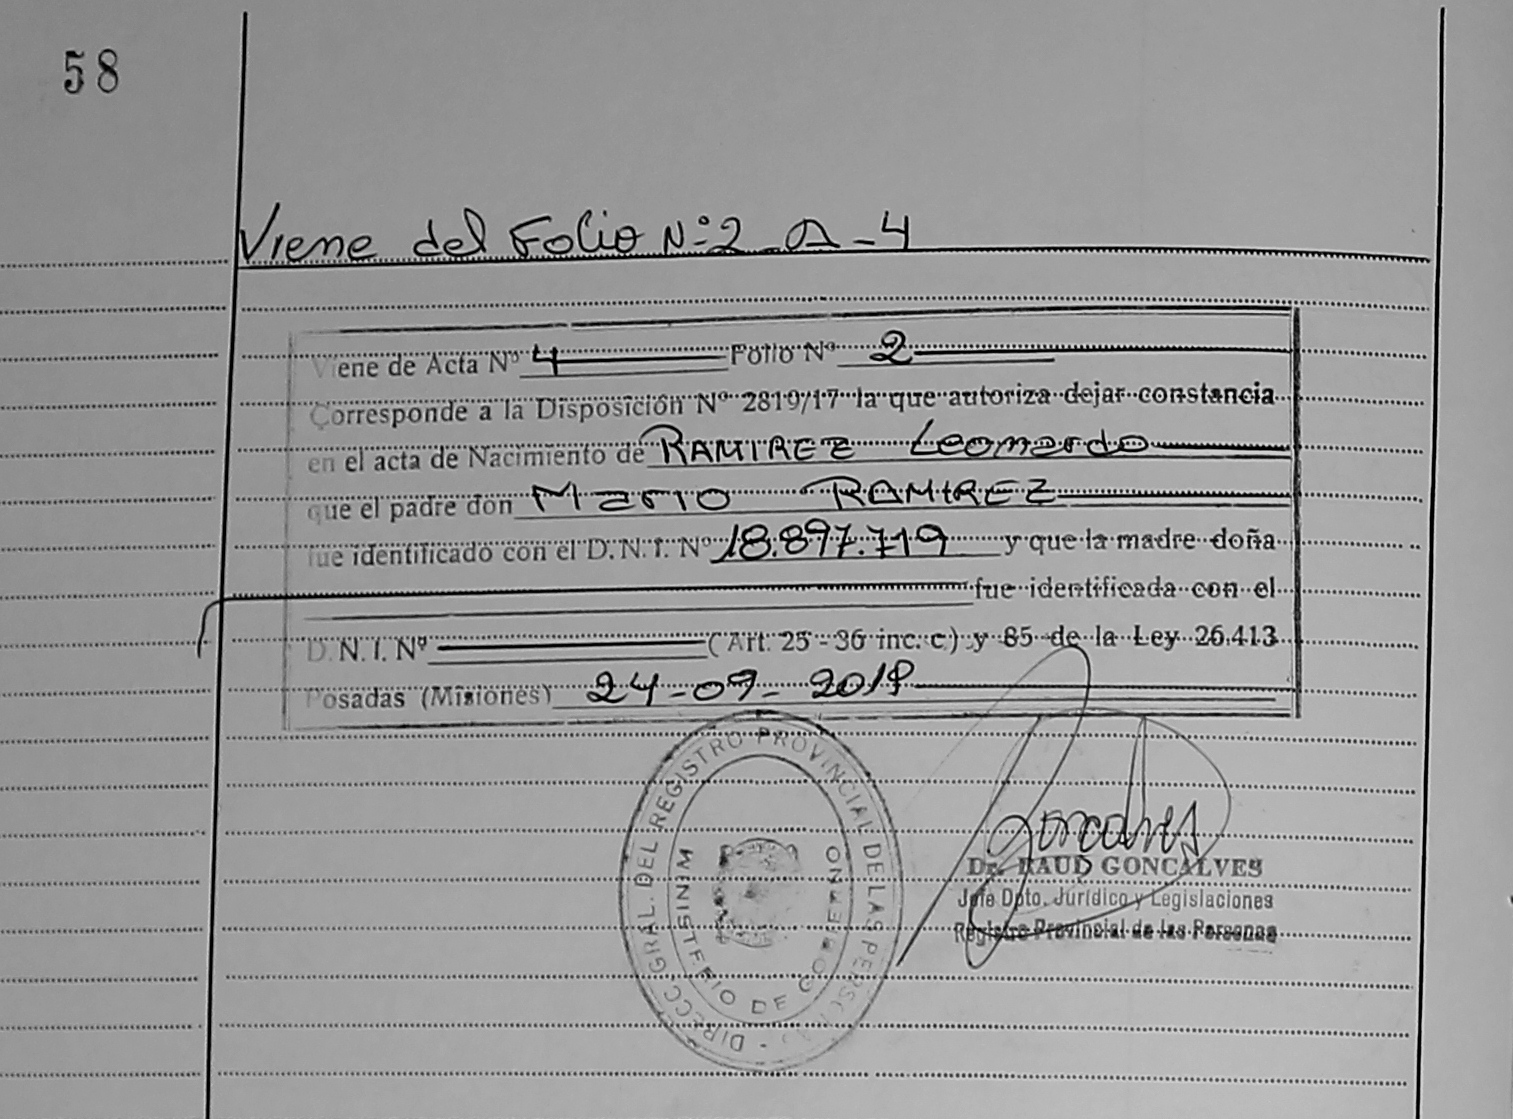 58
Viene del Folio Nº 2 - A - 4
Viene de Acta Nº 4 Folio Nº 2
Corresponde a la Disposición Nº 2819/17 la que autoriza dejar constancia
en el acta de Nacimiento de RAMIREZ Leonardo
que el padre don Mario RAMIREZ
fue identificado con el D.N.I. Nº 18.897.719 y que la madre doña
fue identificada con el
D.N.I. Nº (Art. 25 - 36 inc. c) y 85 de la Ley 26.413
Posadas (Misiones) 24-09-2018
DIRECC. GRAL. DEL REGISTRO PROVINCIAL DE LAS PERSONAS
MINISTERIO DE GOBIERNO
Goncalves
Dr. RAUD GONCALVES
Jefe Dpto. Jurídico y Legislaciones
Registro Provincial de las Personas